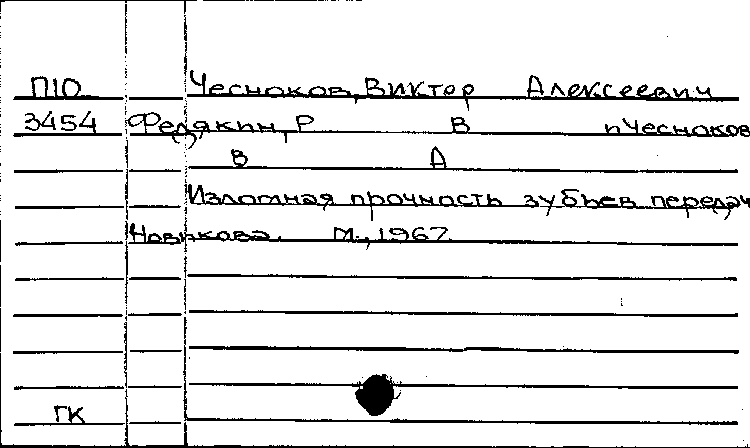 П10 Чесноков, Виктор Алексеевич
3454 Федякин, Р В и Чесноков
В А
Изломная прочность зубьев передач
Новикова. М., 1967
ГК